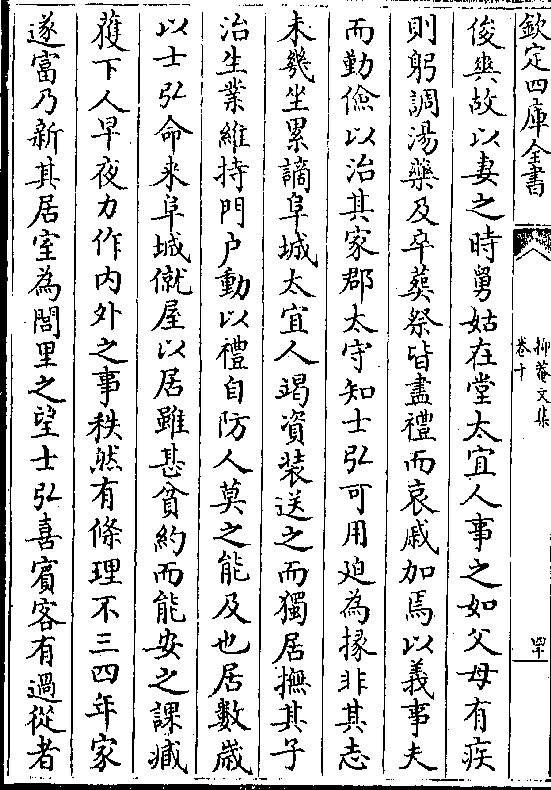 欽定四庫全書
抑菴文集
卷十
四十
俊與故以妻之時舅姑在堂太宜人事之如父母有疾
則躬調湯藥及卒葬祭皆盡禮而哀戚加焉以義事夫
而勤儉以治其家郡太守知士弘可用廹為掾非其志
未幾坐累謫阜城太宜人竭資装送之而獨居撫其子
治生業維持門户動以禮自防人莫之能及也居數歲
以士弘命来阜城僦屋以居雖甚貧約而能安之課臧
獲下人早夜力作内外之事秩然有條理不三四年家
遂富乃新其居室為閭里之望士弘喜賓客有過從者